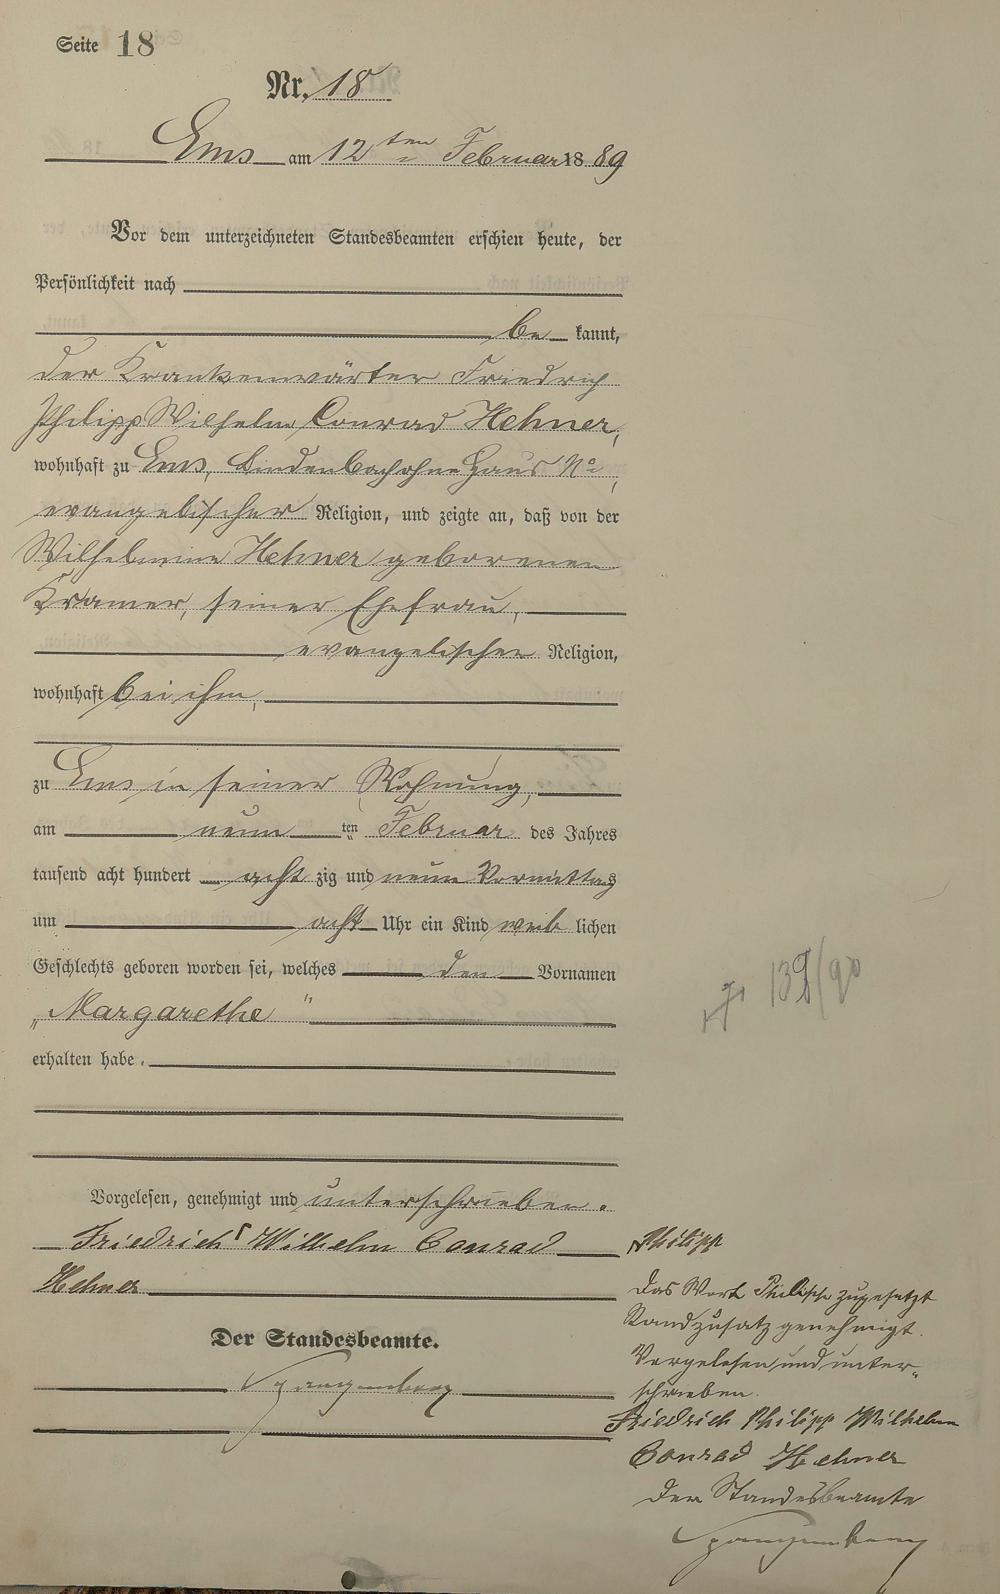 Seite 18
Nr. 18
Ems am 12ten Februar 1889
Vor dem unterzeichneten Standesbeamten erschien heute, der
Persönlichkeit nach
be kannt,
der Krankenwärter Friedrich
Philipp Wilhelm Conrad Hehner,
wohnhaft zu Ems, Lindenbach ohne Haus No,
evangelischer Religion, und zeigte an, daß von der
Wilhelmine Hehner geborenen
Kramer, seiner Ehefrau,
evangelischen Religion,
wohnhaft bei ihm,
zu Ems in seiner Wohnung,
am neun ten Februar des Jahres
tausend acht hundert acht zig und neun Vormittag
um acht Uhr ein Kind weib lichen
Geschlechts geboren worden sei, welches den Vornamen
„Margarethe"
erhalten habe.
Vorgelesen, genehmigt und unterschrieben.
Friedrich Wilhelm Conrad
Hehner
Der Standesbeamte.
Spangenberg
139/90
Philipp
Das Wort Philipp zugesetzt
Randzusatz genehmigt.
Vorgelesen und unter-
schrieben.
Friedrich Philipp Wilhelm
Conrad Hehner
Der Standesbeamte
Spangenberg